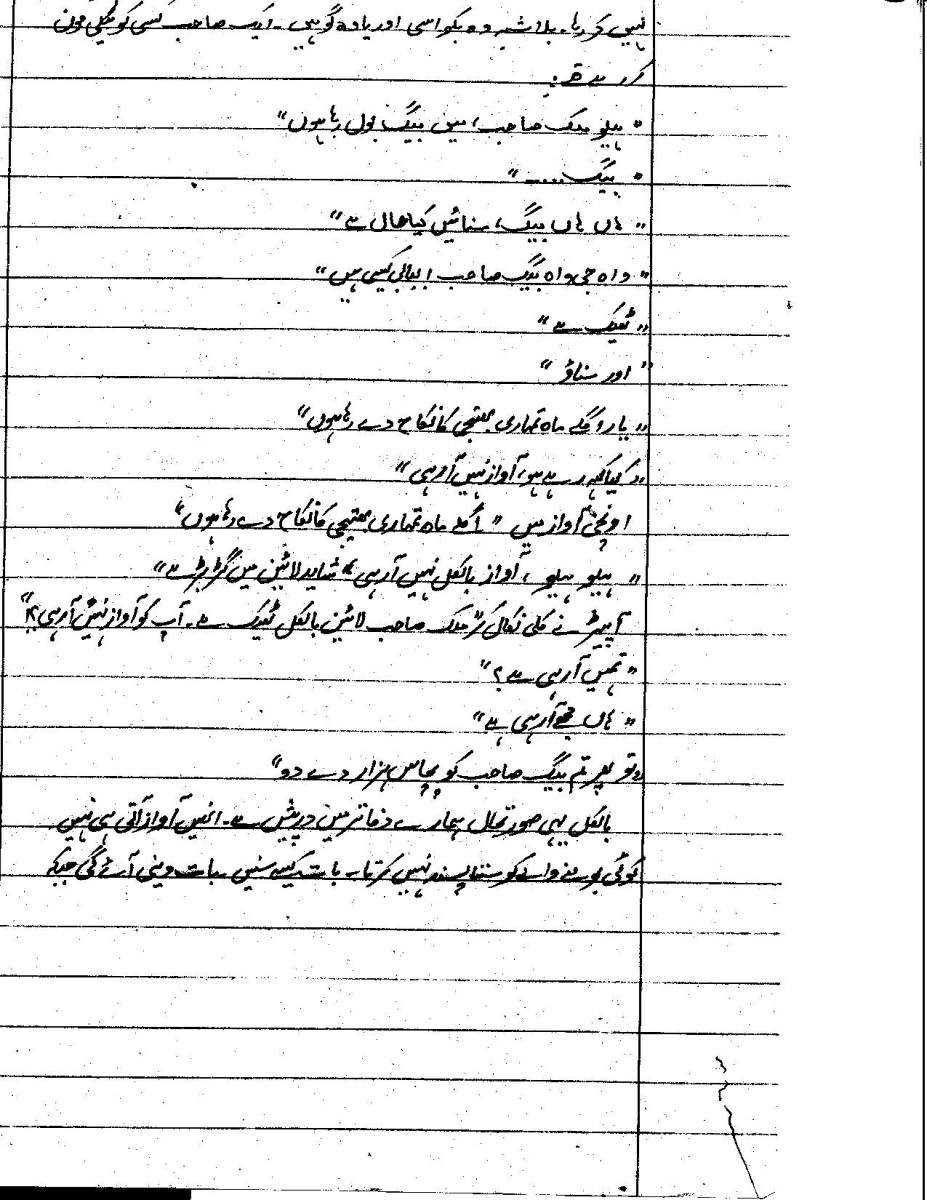 نہیں کر رہا۔ بلاشبہ وہ بکواسی اور یادہ گو ہیں۔ ایک صاحب کسی کو ٹیلی فون
کر رہے تھے:
"ہیلو ملک صاحب، میں بیگ بول رہا ہوں"
"بیگ....."
"ہاں ہاں بیگ، سنائیں کیا حال ہے"
"واہ جی واہ بیگ صاحب، بھابی کیسی ہیں"
"ٹھیک ہے"
"اور سناؤ"
"یار اگلے ماہ تمہاری بھتیجی کا نکاح دے رہا ہوں"
"کیا کہہ رہے ہو، آواز نہیں آ رہی"
اونچی آواز میں "اگلے ماہ تمہاری بھتیجی کا نکاح دے رہا ہوں"
"ہیلو ہیلو، آواز بالکل نہیں آ رہی، شاید لائین میں گڑبڑ ہے"
آپریٹر نے کلی نکال کر "ملک صاحب لائین بالکل ٹھیک ہے۔ آپ کو آواز نہیں آ رہی؟"
"تمہیں آ رہی ہے؟"
"ہاں مجھے آ رہی ہے"
"تو پھر تم بیگ صاحب کو پچاس ہزار دے دو"
بالکل یہی صورتحال ہمارے دفاتر میں درپیش ہے۔ انہیں آواز آتی ہی نہیں۔
کوئی بولنے والے کو سننا پسند نہیں کرتا۔ بات کیسے سنیں۔ بات دینی آئے گی جبکہ